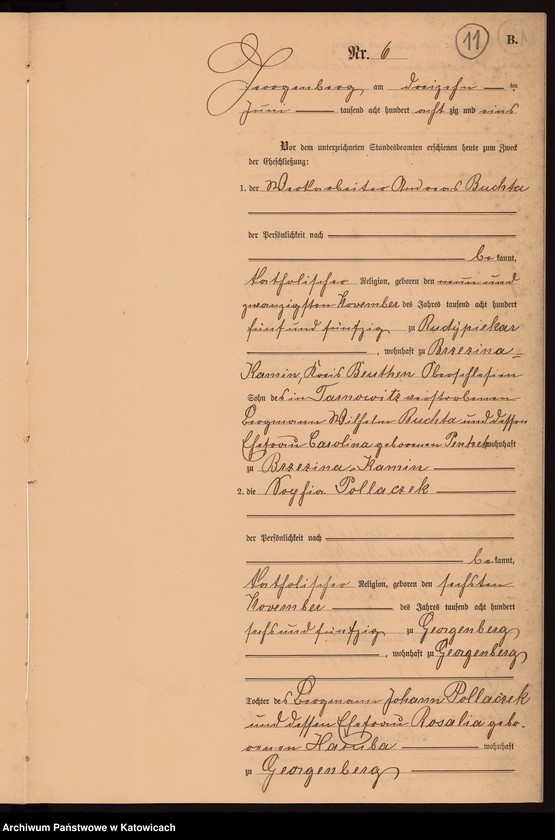 11
B.
Nr. 6
Georgenberg, am dreizehn ten
Juni tausend acht hundert acht zig und eins
Vor dem unterzeichneten Standesbeamten erschienen heute zum Zweck
der Eheschließung:
1. der Werkarbeiter Andreas Buchta
der Persönlichkeit nach
be kannt,
katholischer Religion, geboren den neun und
zwanzigsten November des Jahres tausend acht hundert
fünf und fünfzig zu Rudypiekar
, wohnhaft zu Brzezina=
Kamin, Kreis Beuthen Oberschlesien
Sohn des in Tarnowitz verstorbenen
Bergmann Wilhelm Buchta und dessen
Ehefrau Carolina geborenen wohnhaft
zu Brzezina-Kamin
2. die Sophia Pollaczek
der Persönlichkeit nach
be kannt,
katholischer Religion, geboren den sechsten
November des Jahres tausend acht hundert
sechs und fünfzig zu Georgenberg
, wohnhaft zu Georgenberg
Tochter des Bergmann Johann Pollaczek
und dessen Ehefrau Rosalia gebo-
renen Haruba wohnhaft
zu Georgenberg
Archiwum Państwowe w Katowicach